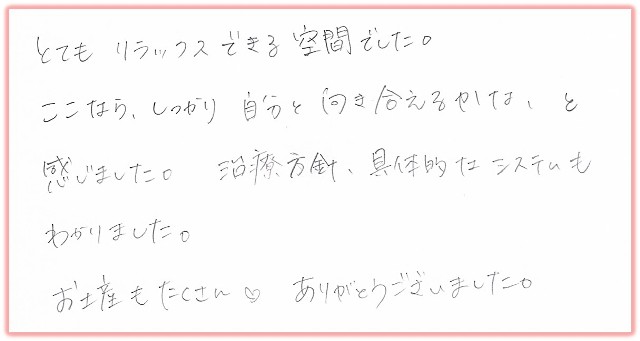 とても リラックスできる空間でした。
ここなら、しっかり 自分と向き合えるかな、と
感じました。 治療方針、具体的なシステムも
わかりました。
お土産もたくさん♡ ありがとうございました。